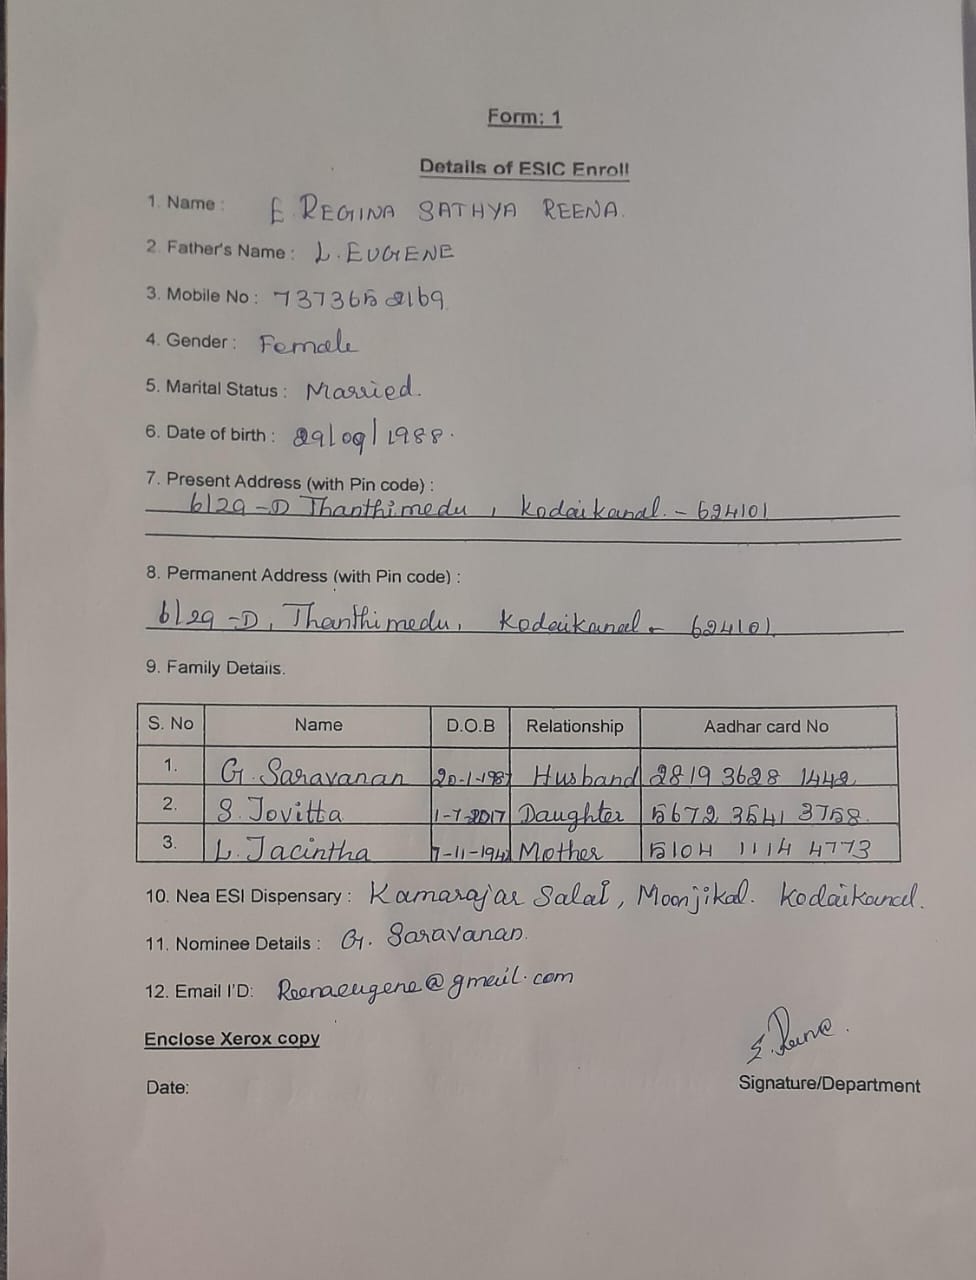 Form: 1
Details of ESIC Enroll
1. Name : E. REGINA SATHYA REENA.
2. Father's Name : L. EUGENE
3. Mobile No : 7373652169
4. Gender : Female
5. Marital Status : Married.
6. Date of birth : 29/09/1988.
7. Present Address (with Pin code) :
6/29-D Thanthimedu, Kodaikanal. - 624101
8. Permanent Address (with Pin code) :
6/29-D, Thanthimedu, Kodaikanal - 624101
9. Family Details.
S. No Name D.O.B Relationship Aadhar card No
1. G. Saravanan 20-1-1987 Husband 2819 3628 1442
2. S. Jovitta 1-7-2017 Daughter 5672 3541 3758.
3. L. Jacintha 7-11-194 Mother 5104 1114 4773
10. Nea ESI Dispensary : Kamarajar Salai, Moonjikal. Kodaikanal.
11. Nominee Details : G. Saravanan.
12. Email I'D: Reenaeugene@gmail.com
Enclose Xerox copy
E. Reena.
Date: Signature/Department